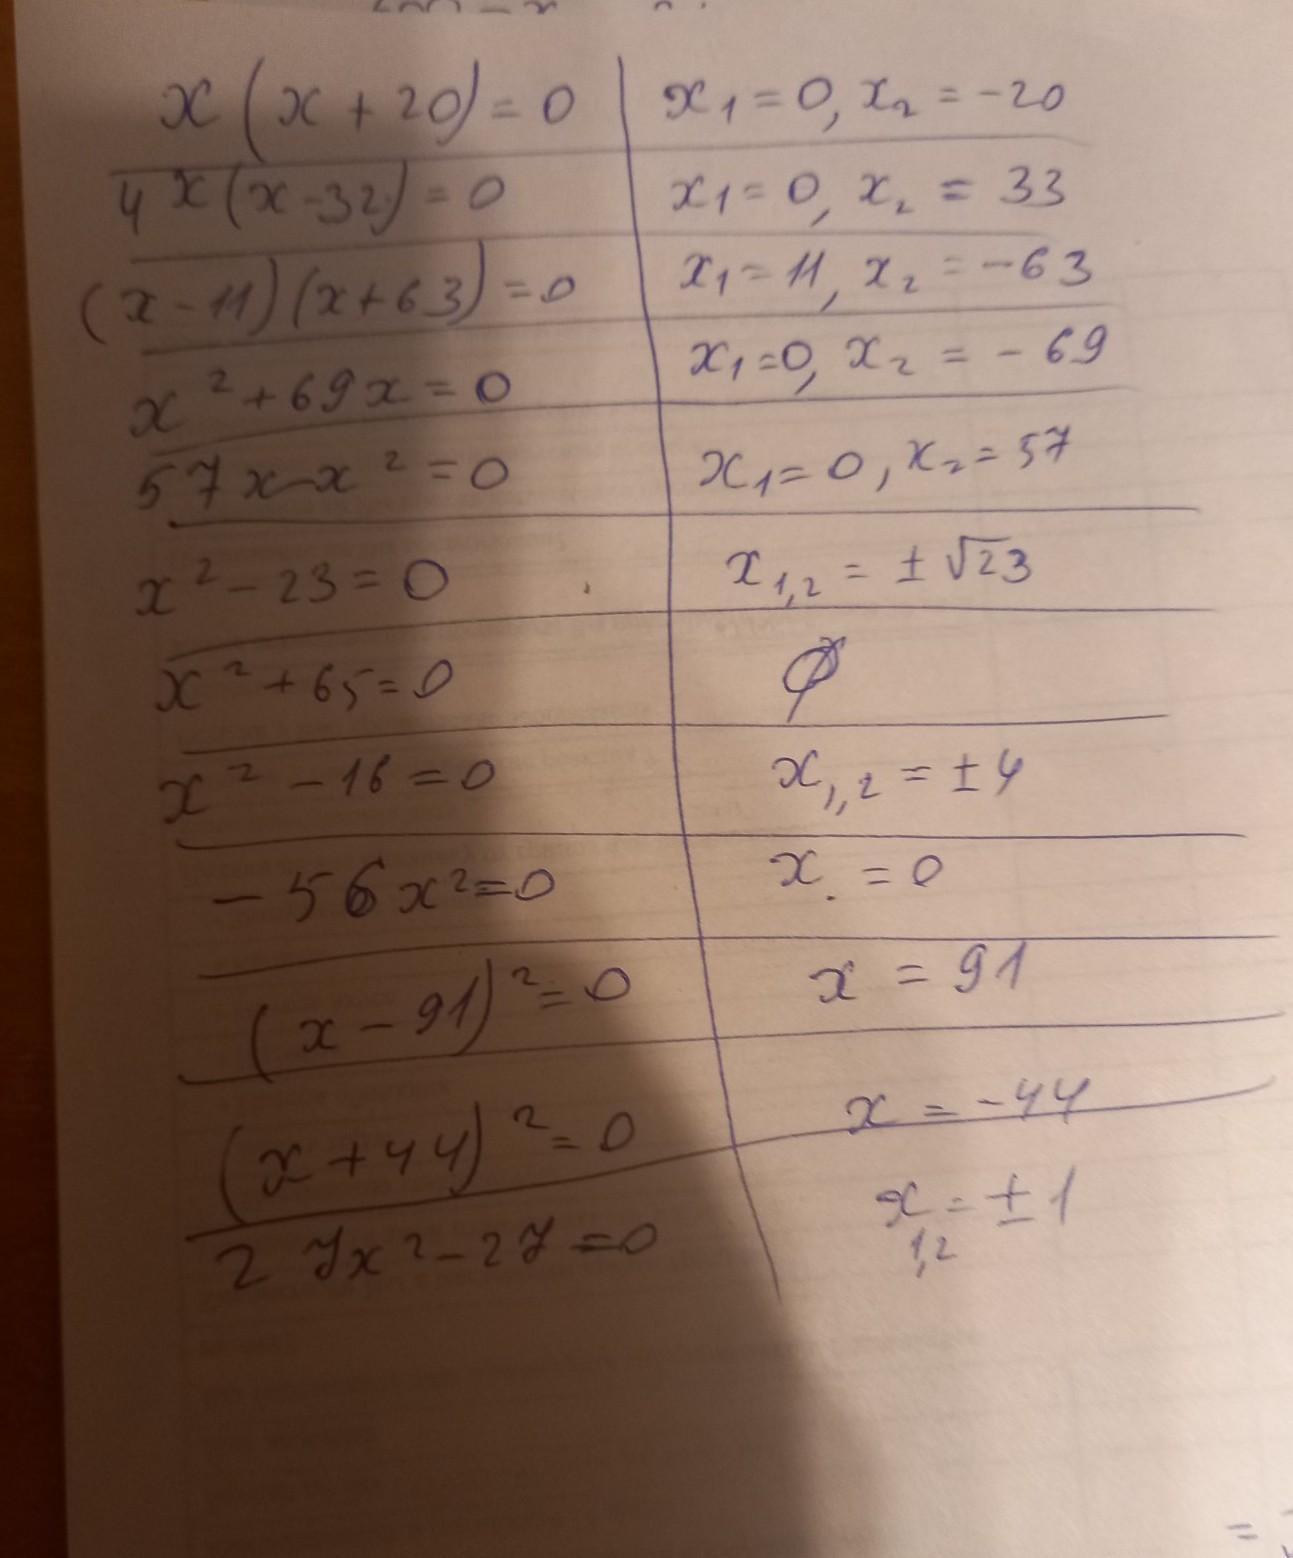 x(x+20)=0 x₁=0, x₂=-20
4x(x-32)=0 x₁=0, x₂=33
(x-11)(x+63)=0 x₁=11, x₂=-63
x²+69x=0 x₁=0, x₂=-69
57x-x²=0 x₁=0, x₂=57
x²-23=0 x₁,₂=±√23
x²+65=0 ∅
x²-16=0 x₁,₂=±4
-56x²=0 x=0
(x-91)²=0 x=91
(x+44)²=0 x=-44
27x²-27=0 x₁,₂=±1
=